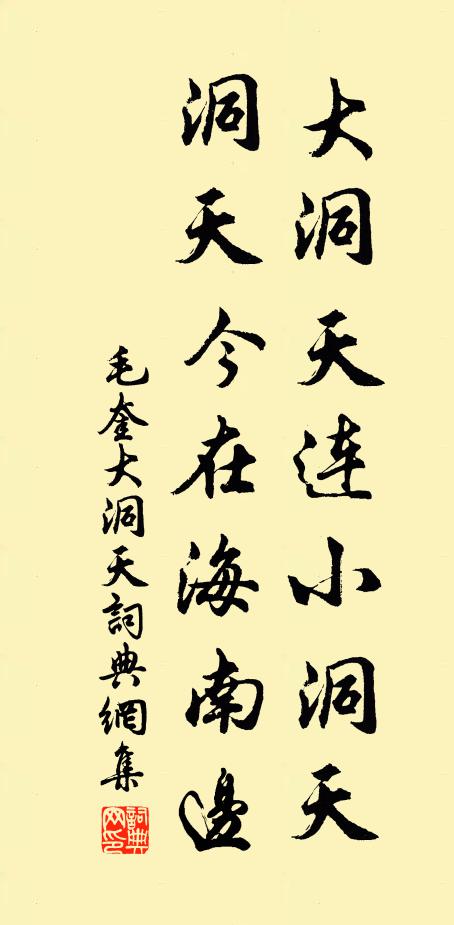 大洞天連小洞天
洞天今在海南邊
毛奎大洞天詞典網集
詞典網印